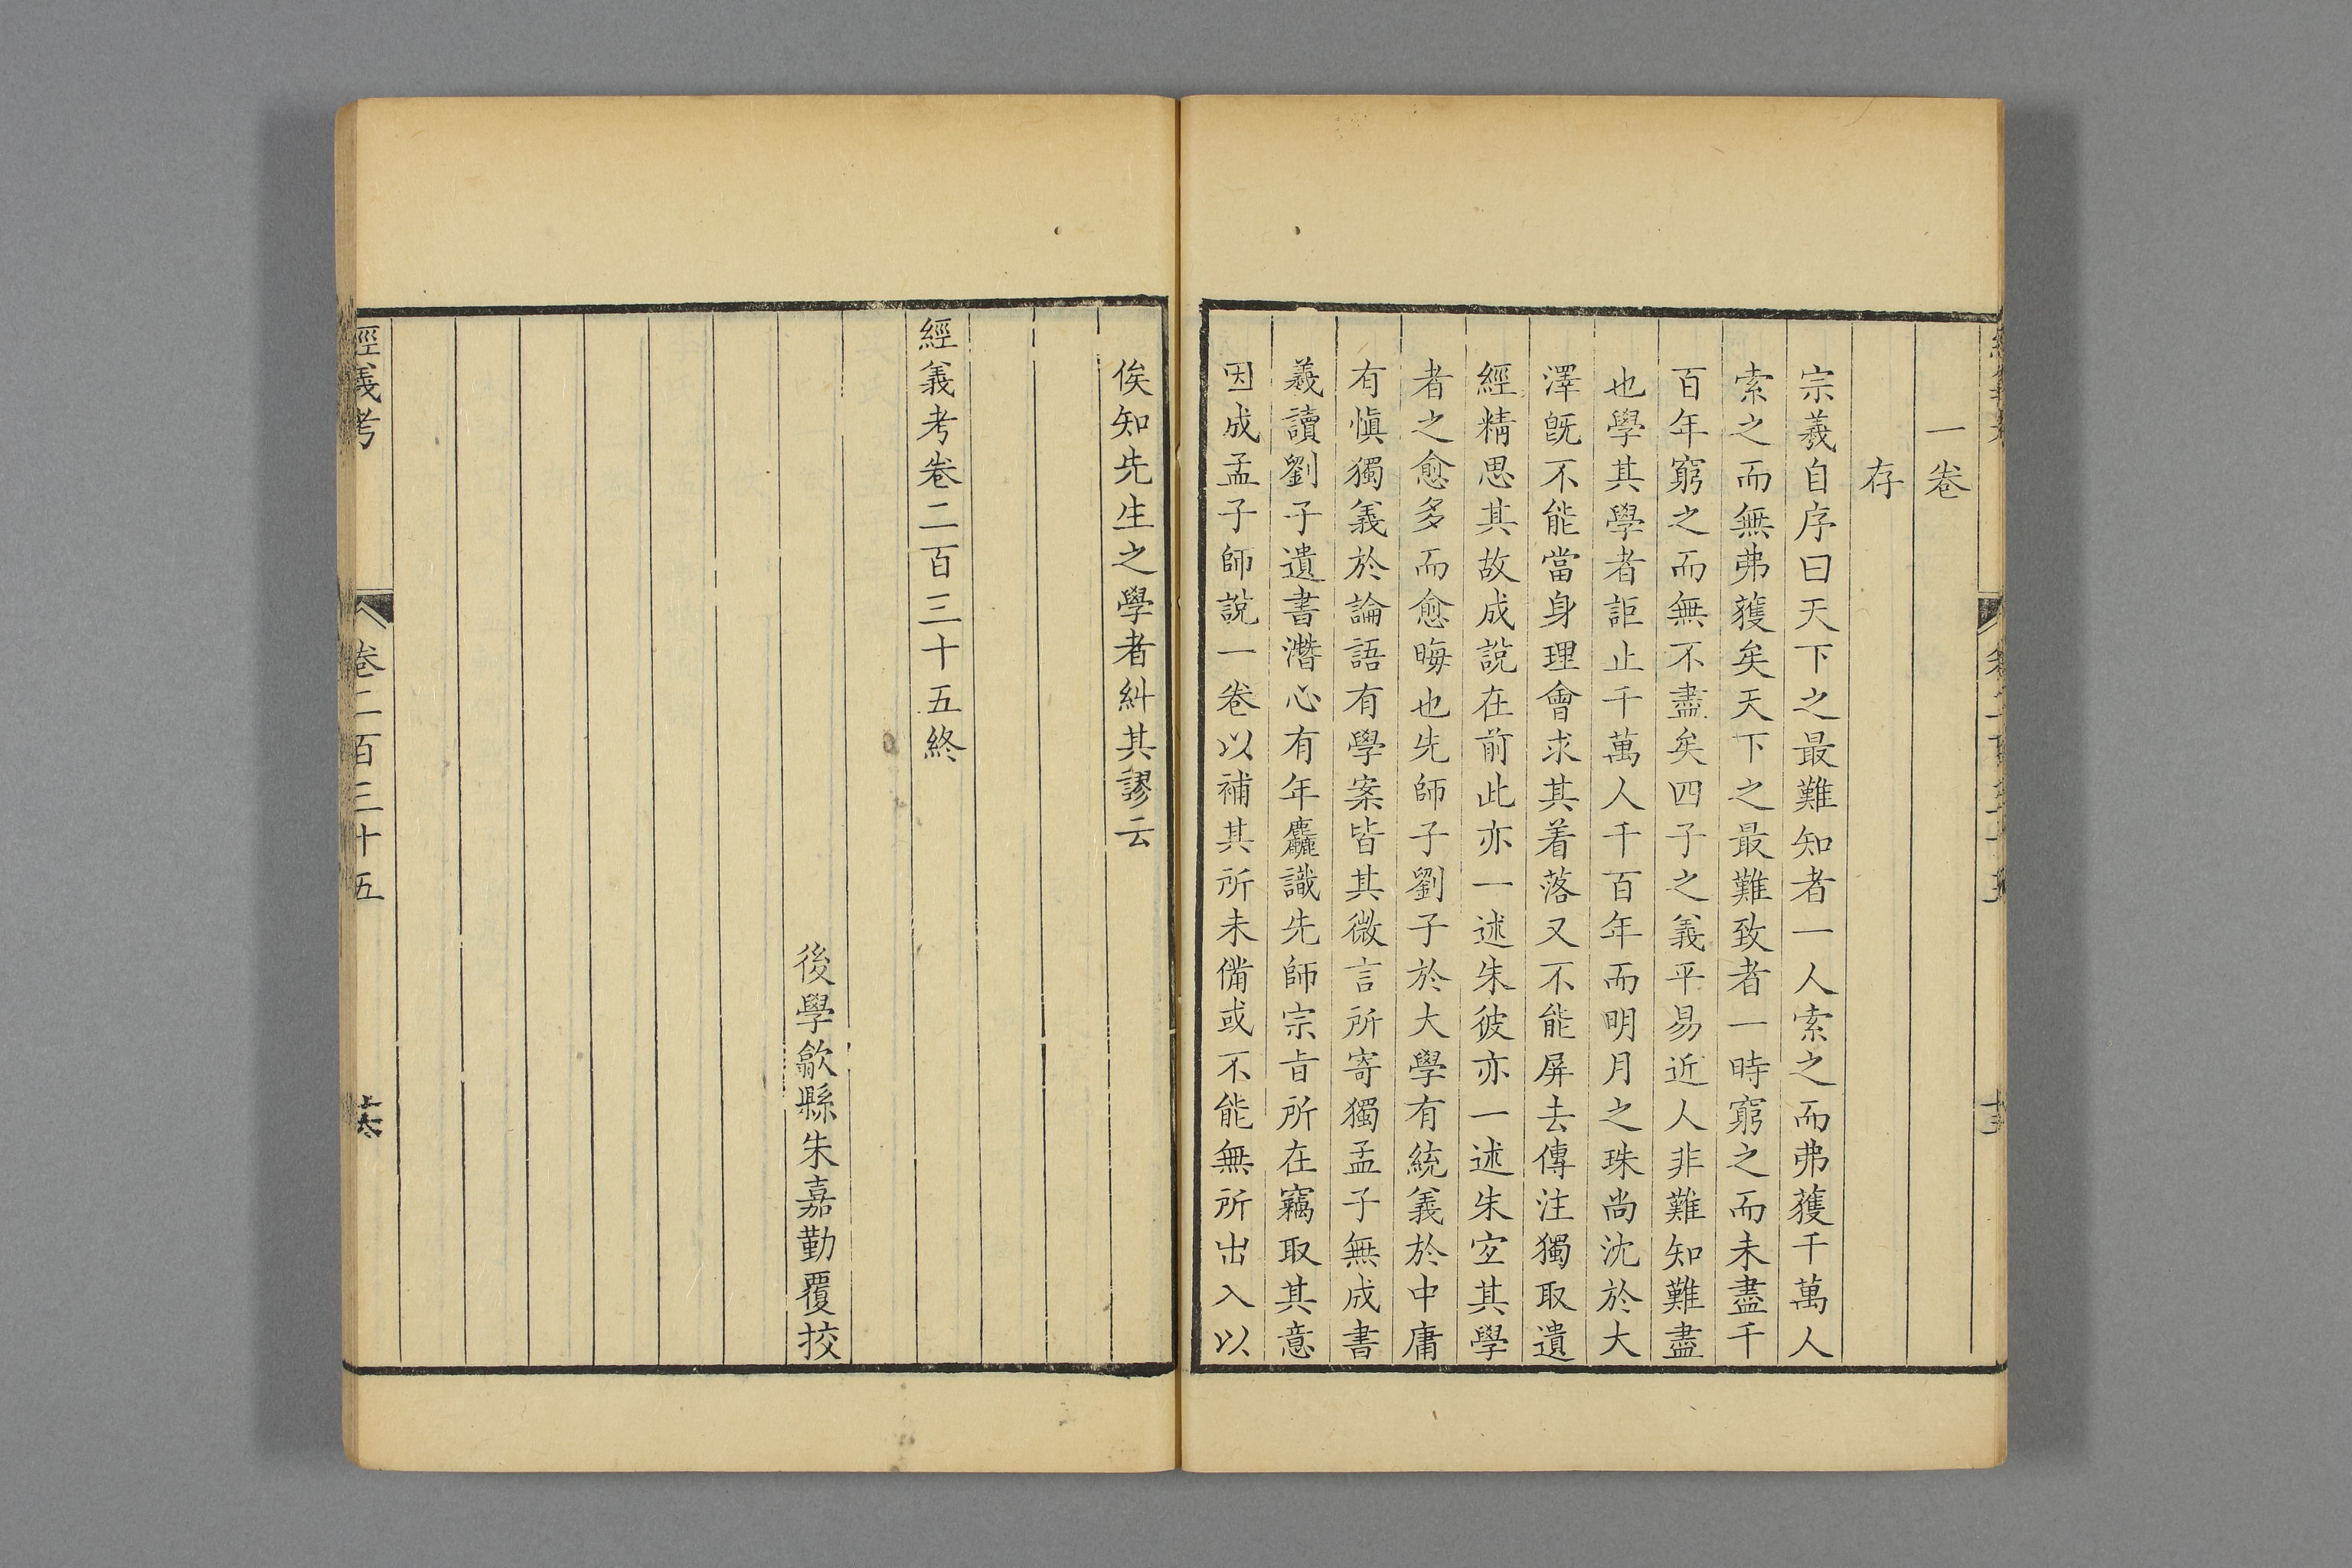 一卷
存
宗羲自序曰天下之最難知者一人索之而弗獲千萬人
索之而無弗獲矣天下之最難致者一時窮之而未盡千
百年窮之而無不盡矣四子之義平易近人非難知難盡
也學其學者詎止千萬人千百年而明月之珠尚沈於大
澤旣不能當身理會求其着落又不能屏去傳注獨取遺
經精思其故成說在前此亦一述朱彼亦一述朱宐其學
者之愈多而愈晦也先師子劉子於大學有統義於中庸
有愼獨義於論語有學案皆其微言所寄獨孟子無成書
羲讀劉子遺書潛心有年麤識先師宗旨所在竊取其意
因成孟子師說一卷以補其所未備或不能無所出入以
俟知先生之學者糾其謬云
經義考卷二百三十五終
後學歙縣朱嘉勤覆挍
經義考
卷二百三十五